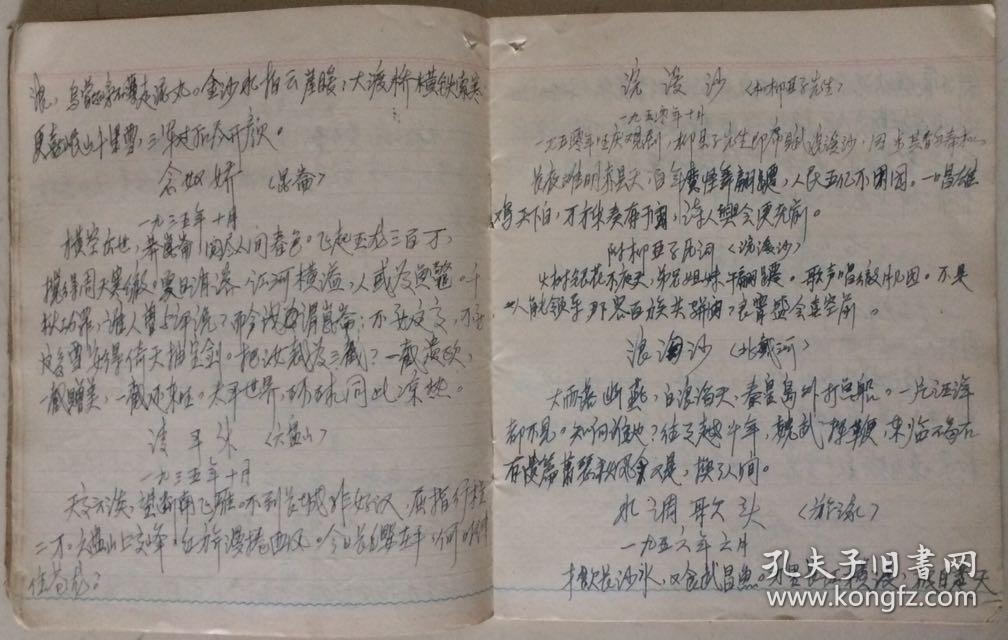 浪，乌蒙磅礴走泥丸。金沙水拍云崖暖，大渡桥横铁索寒
更喜岷山千里雪，三军过后尽开颜。
念奴娇（昆崙）
一九三五年十月
横空出世，莽崑崙，阅尽人间春色。飞起玉龙三百万，
搅得周天寒彻。夏日消溶，江河横溢，人或为鱼鳖。千
秋功罪，谁人曾与评说？而今我谓崑崙：不要这高，不要
这多雪。安得倚天抽宝剑。把汝裁为三截？一截遗欧，
一截赠美，一截还东。太平世界，环球同此凉热。
清平乐（六盘山）
一九三五年十月
天高云淡，望断南飞雁。不到长城非好汉，屈指行程
二万。六盘山上高峰。红旗漫捲西风。今日长缨在手，何时
住苍龙？
浣溪沙（和柳亚子先生）
一九五零年十月
一九五零年国庆观剧，柳亚子先生即席赋浣溪沙，因步其韵奉和。
长夜难明赤县天，百年魔怪舞翩跹，人民五亿不团圆。一唱雄
鸡天下白，万方奏有于阗，诗人兴会更无前。
附柳亚子原词（浣溪沙）
火树银花不夜天，弟兄姐妹舞翩跹。歌声唱彻月儿圆。不是
一人能领导，那容百族共骈阗？良宵盛会喜空前。
浪淘沙（北戴河）
大雨落幽燕，白浪滔天，秦皇岛外打鱼船。一片汪洋
都不见。知向谁边？往事越千年，魏武挥鞭，东临碣石
有遗篇。萧瑟秋风今又是，换了人间。
水调歌头（游泳）
一九五六年六月
才饮长沙水，又食武昌鱼。万里长江横渡，极目楚天
孔夫子旧书网
www.kongfz.com